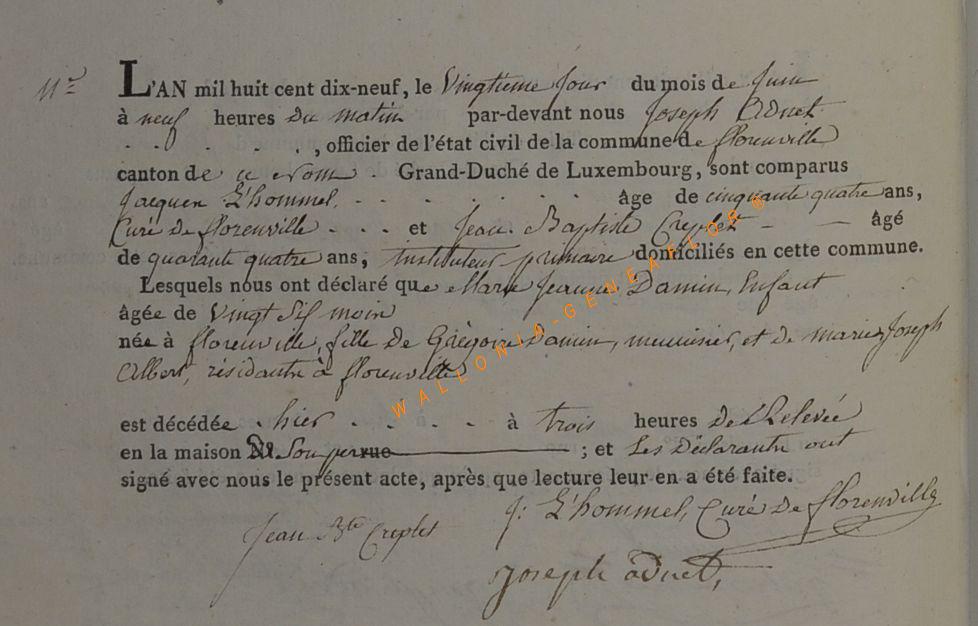 11e
L'AN mil huit cent dix-neuf, le Vingtieme jour du mois de juin
à neuf heures du matin par-devant nous Joseph Adnet
. . . . . . , officier de l'état civil de la commune de florenville
canton de ce nom . Grand-Duché de Luxembourg, sont comparus
Jacques L'hommel, . . . . . . . âge de cinquante quatre ans,
Curé de florenville . . . et Jean Baptiste Creplet - — âgé
de quarante quatre ans, instituteur primaire domiciliés en cette commune.
Lesquels nous ont déclaré que Marie Jeanne Damin, Enfant
âgée de Vingt Six mois
née à florenville, fille de Grégoire Damin, meunier, et de marie Joseph
Albert, résidants à florenville
est décédée . hier . . . . . à trois heures de Relevée
en la maison ; et Les Déclarants ont
signé avec nous le présent acte, après que lecture leur en a été faite.
J: L'hommel, Curé De florenville
Jean Bte Creplet
Joseph adnet,
WALLONIA-GENEA-LOR